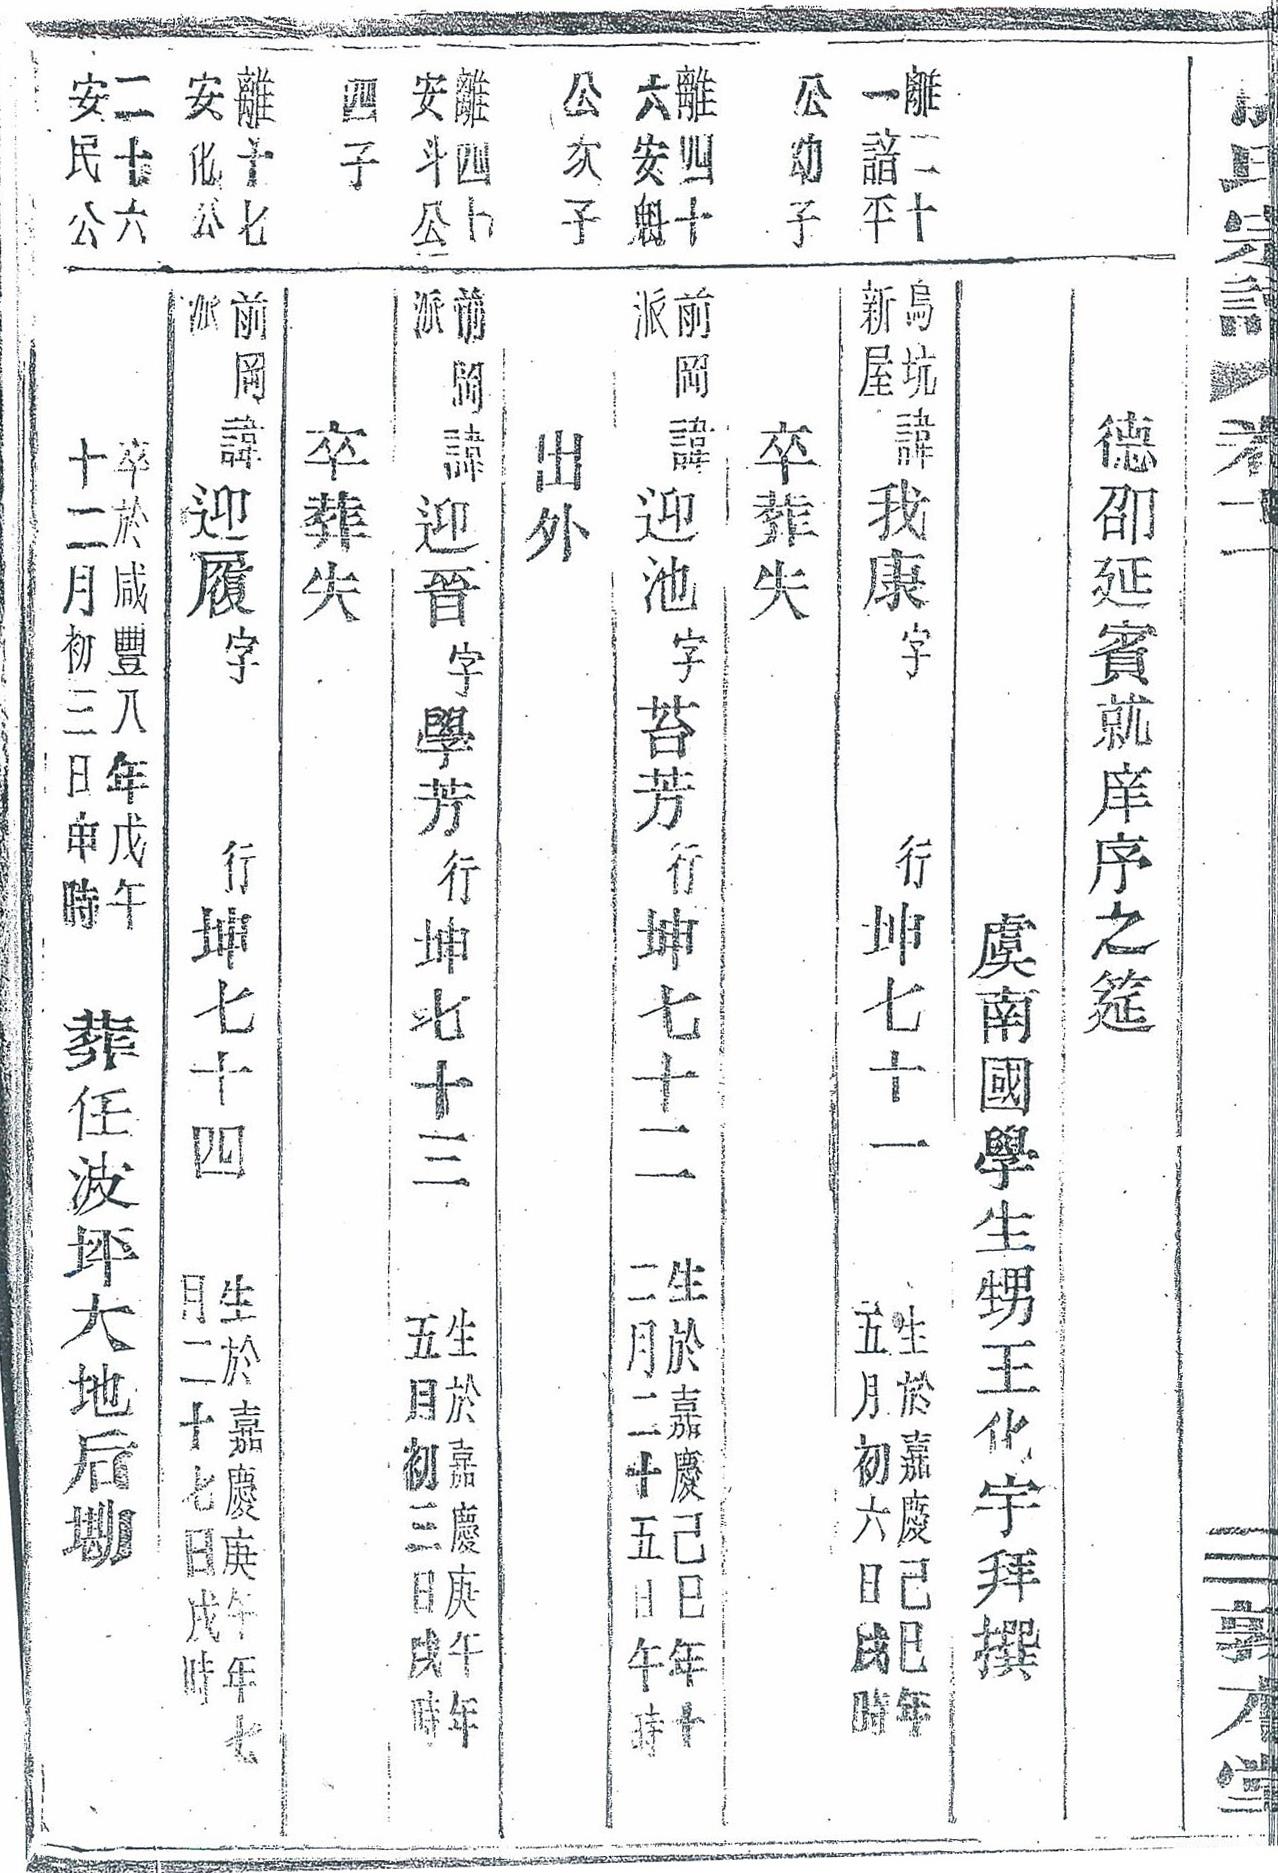 氏宗譜 卷十一
敦本堂
德邵延賓就庠序之筵
虞南國學生甥王化宇拜撰
離二十
一諳平
公幼子
烏坑
新屋
諱我康字 行坤七十一
生於嘉慶己巳年
五月初六日戌時
卒葬失
離四十
六安魁
公次子
前岡
派
諱迎池字苔芳行坤七十二
生於嘉慶己巳年十
二月二十五日午時
出外
離四七
安斗公
四子
前岡
派
諱迎晋字學芳行坤七十三
生於嘉慶庚午年
五日初三日戌時
卒葬失
離十七
安化公
二十六
安民公
前岡
派
諱迎履字 行坤七十四
生於嘉慶庚午年七
月二十七日戌時
卒於咸豐八年戊午
十二月初三日申時
葬任波坪大地后塝